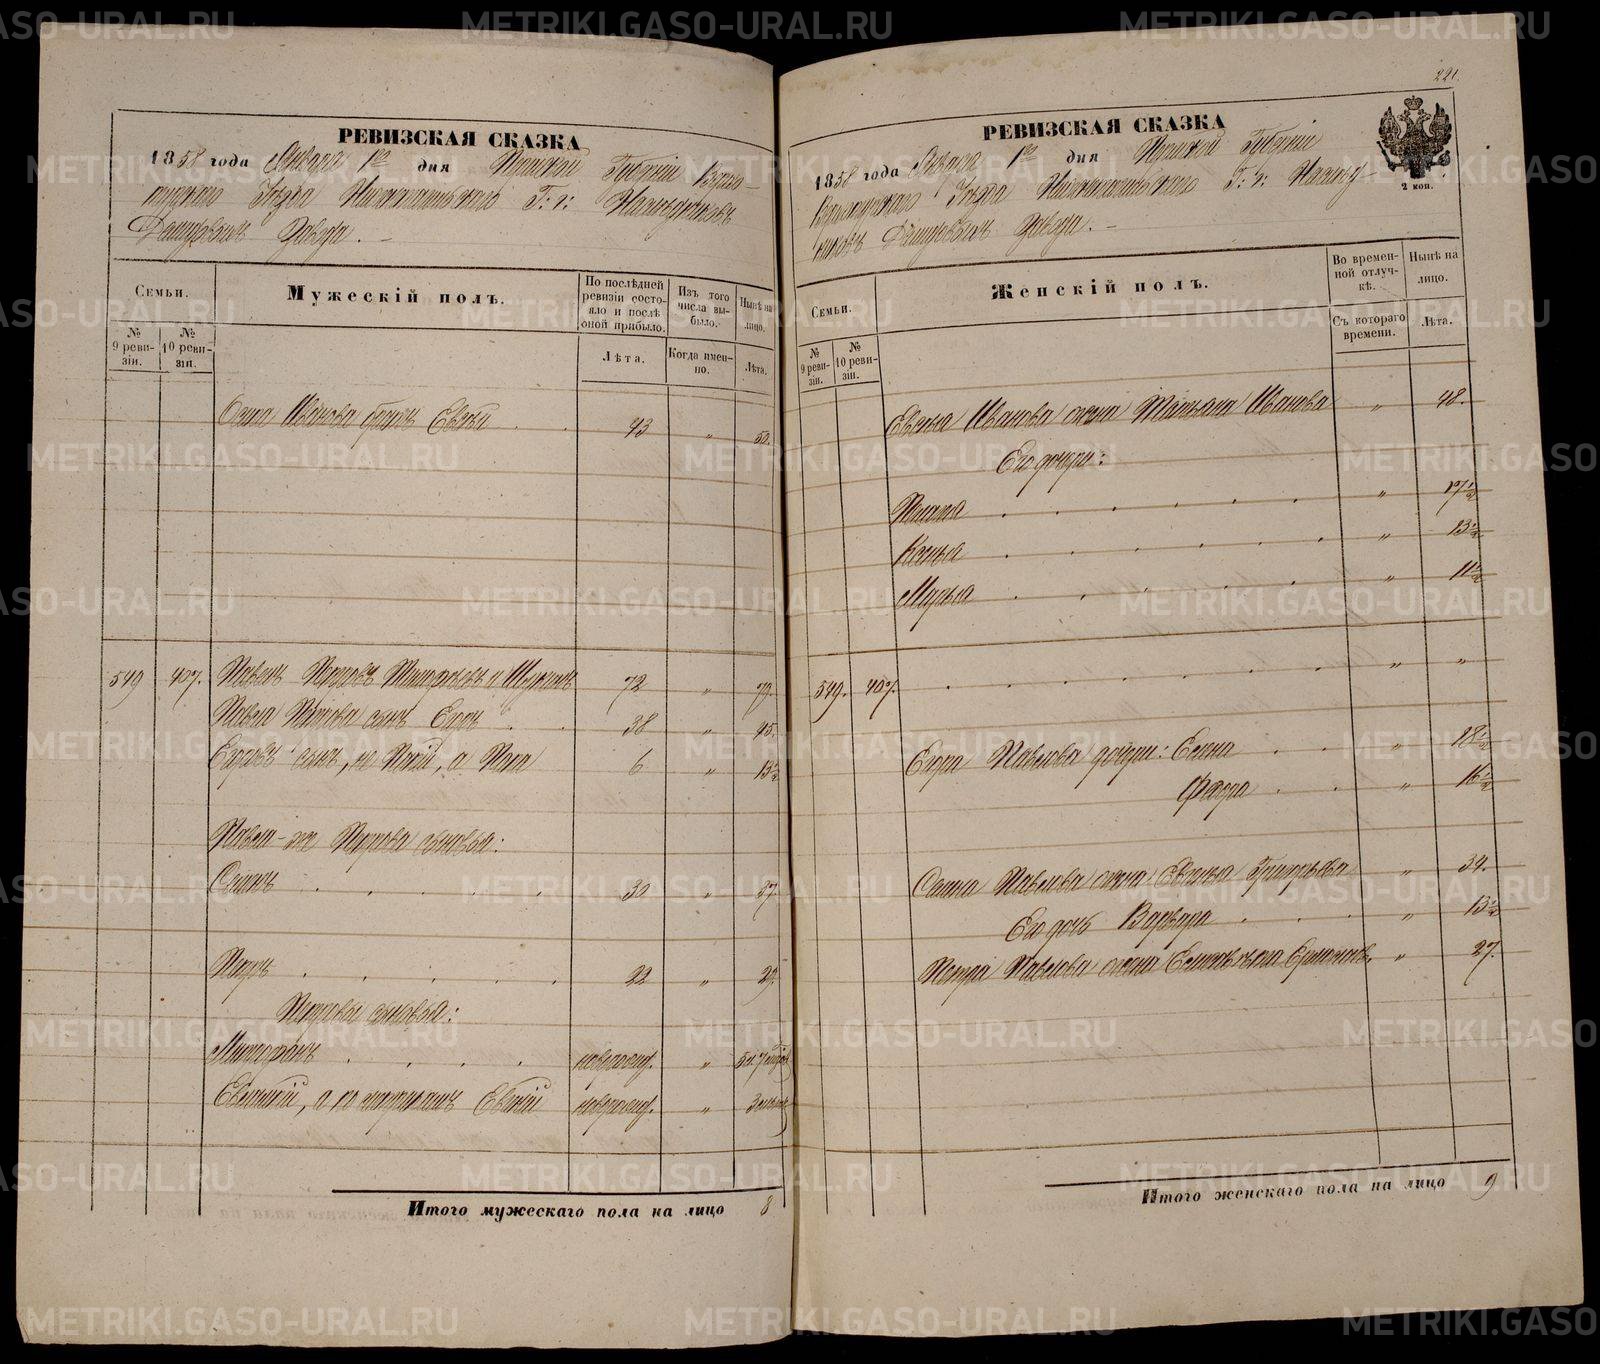 221.
РЕВИЗСКАЯ СКАЗКА
1858 года Января 1го дня Пермской Губернiи Верхо-
турскаго Уѣзда Нижнетагильскаго Г: г: Наслѣдниковъ
Демидовыхъ Завода. –
Семьи.
№ 9 реви-зiи.
№ 10 реви-зiи.
Мужескiй полъ.
По послѣдней ревизiи состо-яло и послѣ оной прибыло.
Лѣта.
Изъ того числа вы-было.
Когда имен-но.
Нынѣ на лицо.
Лѣта.
Осипъ Иванова братъ Евсѣй 43 " 50.
549 407. Павелъ Петровъ 72 " 79.
Павла Петрова сынъ Егоръ 38 " 45.
Егоровъ сынъ, не , а 6 " 13½
Павла-же Петрова сыновья:
30 " 37.
Петръ 22 " 29.
Петровы сыновья:
Митрофанъ новорожд. "
, а по метрикамъ новорожд. " 3
Итого мужескаго пола на лицо 8
РЕВИЗСКАЯ СКАЗКА
1858 года Января 1го дня Пермской Губернiи
Верхотурскаго Уѣзда Нижнетагильскаго Г: г: Наслѣд-
никовъ Демидовыхъ Завода. –
2 коп.
Семьи.
№ 9 реви-зiи.
№ 10 реви-зiи.
Женскiй полъ.
Во времен-ной отлуч-кѣ.
Съ котораго времени.
Нынѣ на лицо.
Лѣта.
Евсѣя Иванова жена Татьяна Иванова " 48.
Его дочери:
" 17½
Ксенья " 13½
Марья " 11½
549. 407. " "
Егора Павлова дочери: Елена " 18½
" 16½
Павлова жена Евгенья Григорьева " 34.
Его дочь Варвара " 13½
Петра Павлова жена " 27.
Итого женскаго пола на лицо 9
METRIKI.GASO-URAL.RU